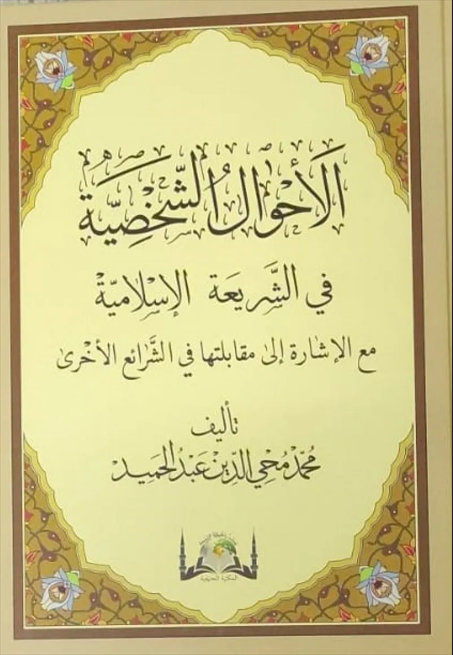 الأحوال الشّخصيّة
في الشّريعة الإسلاميّة
مع الإشارة إلى مقابلتها في الشّرائع الأخرى
تأليف
محمّد محيي الدّين عبد الحميد